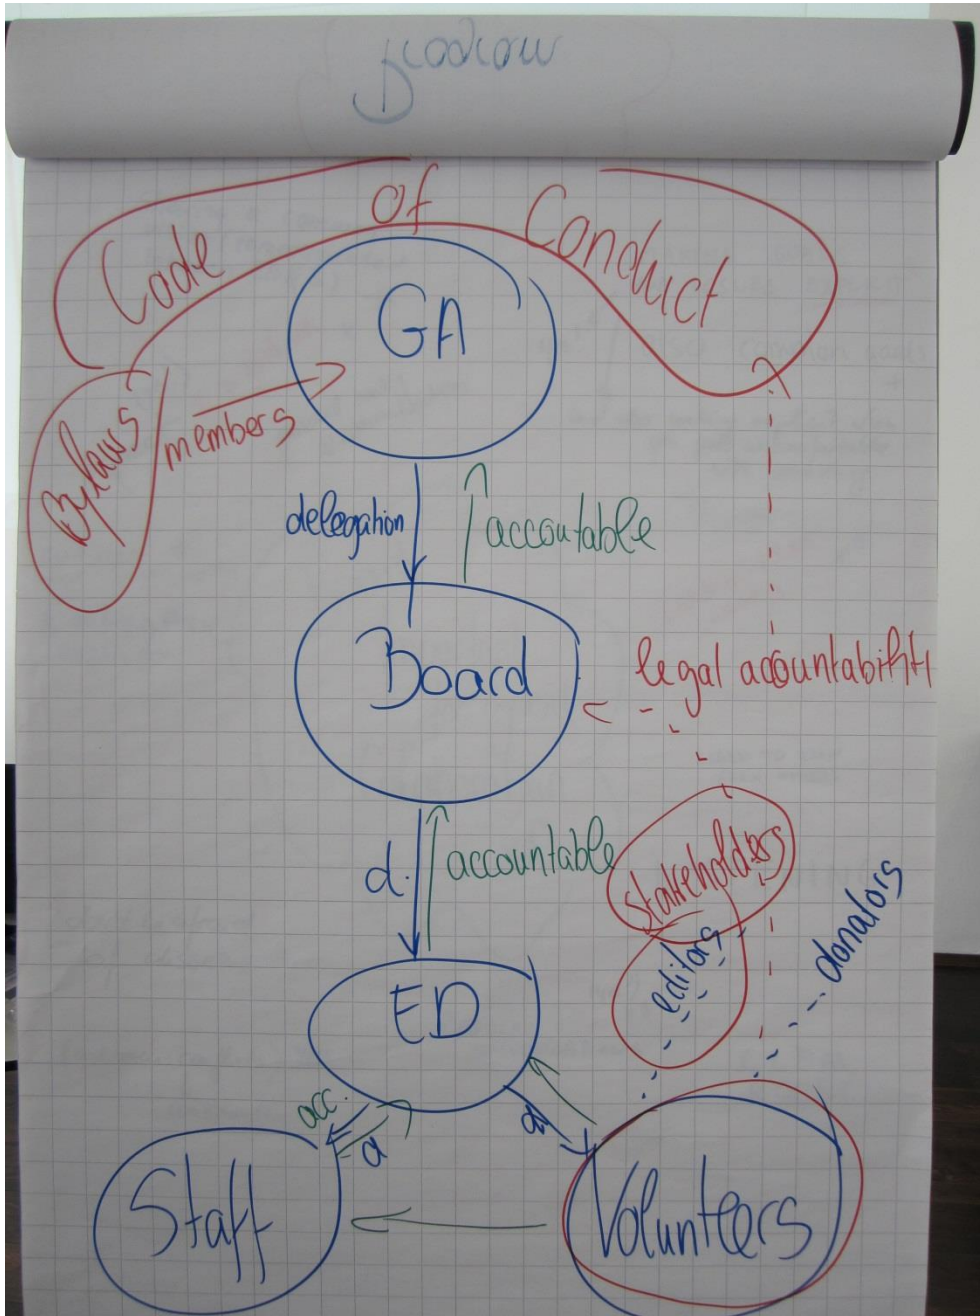 Code of Conduct
GA
Bylaws
members
delegation
accoutable
Board
legal accountability
d.
accountable
stakeholders
editors
donators
ED
acc.
d
d
Staff
Volunteers